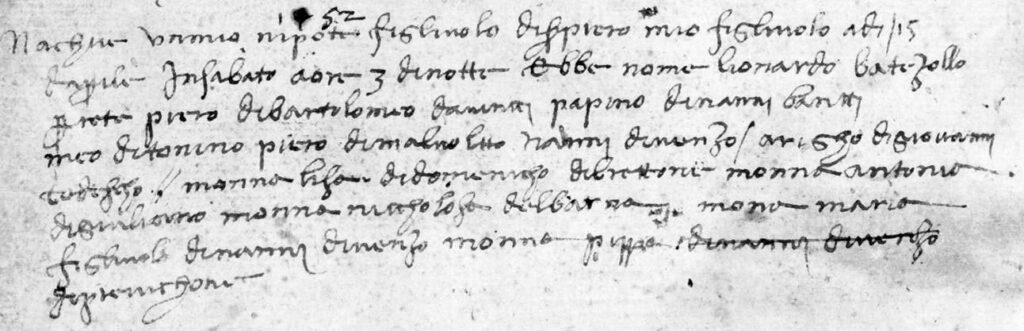 52
Nachue un mio nipote figliuolo di ser piero mio figliuolo adi 15
daprile in sabato a ore 3 di notte ebbe nome lionardo batezollo
prete piero di bartolomeo da vinci papino di nanni bantti
meo di tonino piero di malvoltto nanni di venzo / arigho di giovanni
tedescho / monna lisa di domenicho di brettone monna antonia
di giuliano monna niccholosa del barna mona maria
figliuola di nanni di venzo monna pippa di nanni di venzo
di previchone